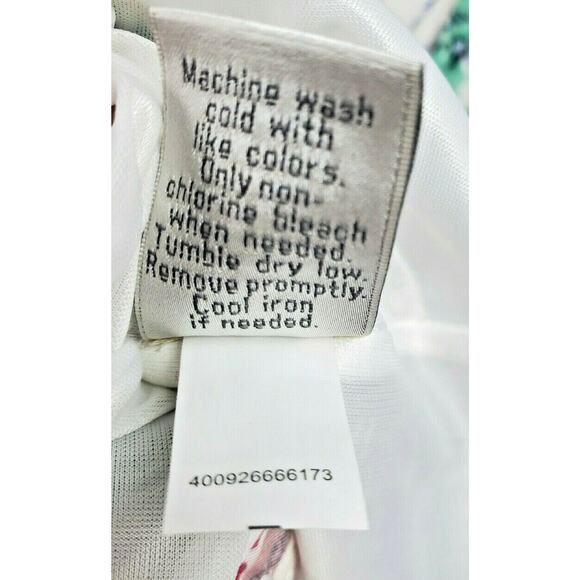 Machine wash
cold with
like colors.
Only non-
chlorine bleach
when needed.
Tumble dry low.
Remove promptly.
Cool iron
if needed.
400926666173